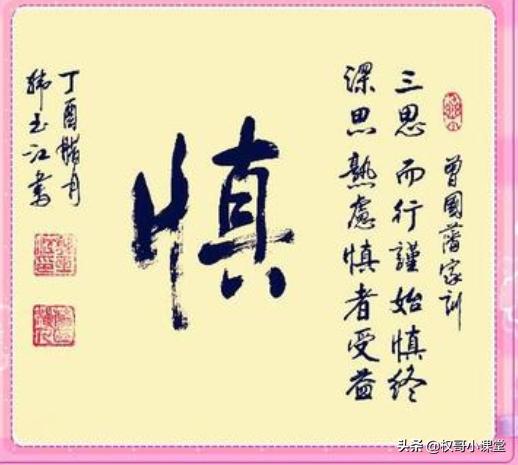 曾國藩家訓
三思而行謹始慎終
深思熟慮慎者受益
慎
丁酉
玉江書
头条 @权哥小课堂